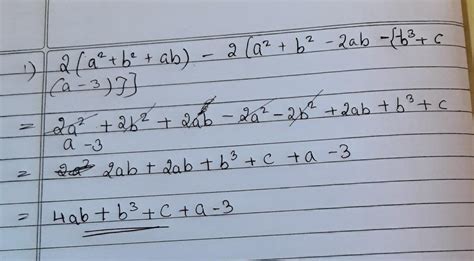 1) 2(a² + b² + ab) - 2[a² + b² - 2ab - {b³ + c
(a - 3)}]
= 2a² + 2b² + 2ab - 2a² - 2b² + 2ab + b³ + c
a - 3
= 2ab + 2ab + b³ + c + a - 3
= 4ab + b³ + c + a - 3